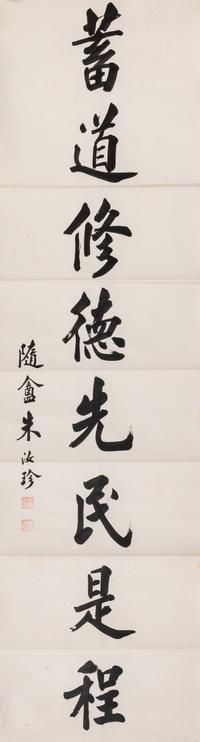 蓄道修德先民是程
隨盦朱汝珍